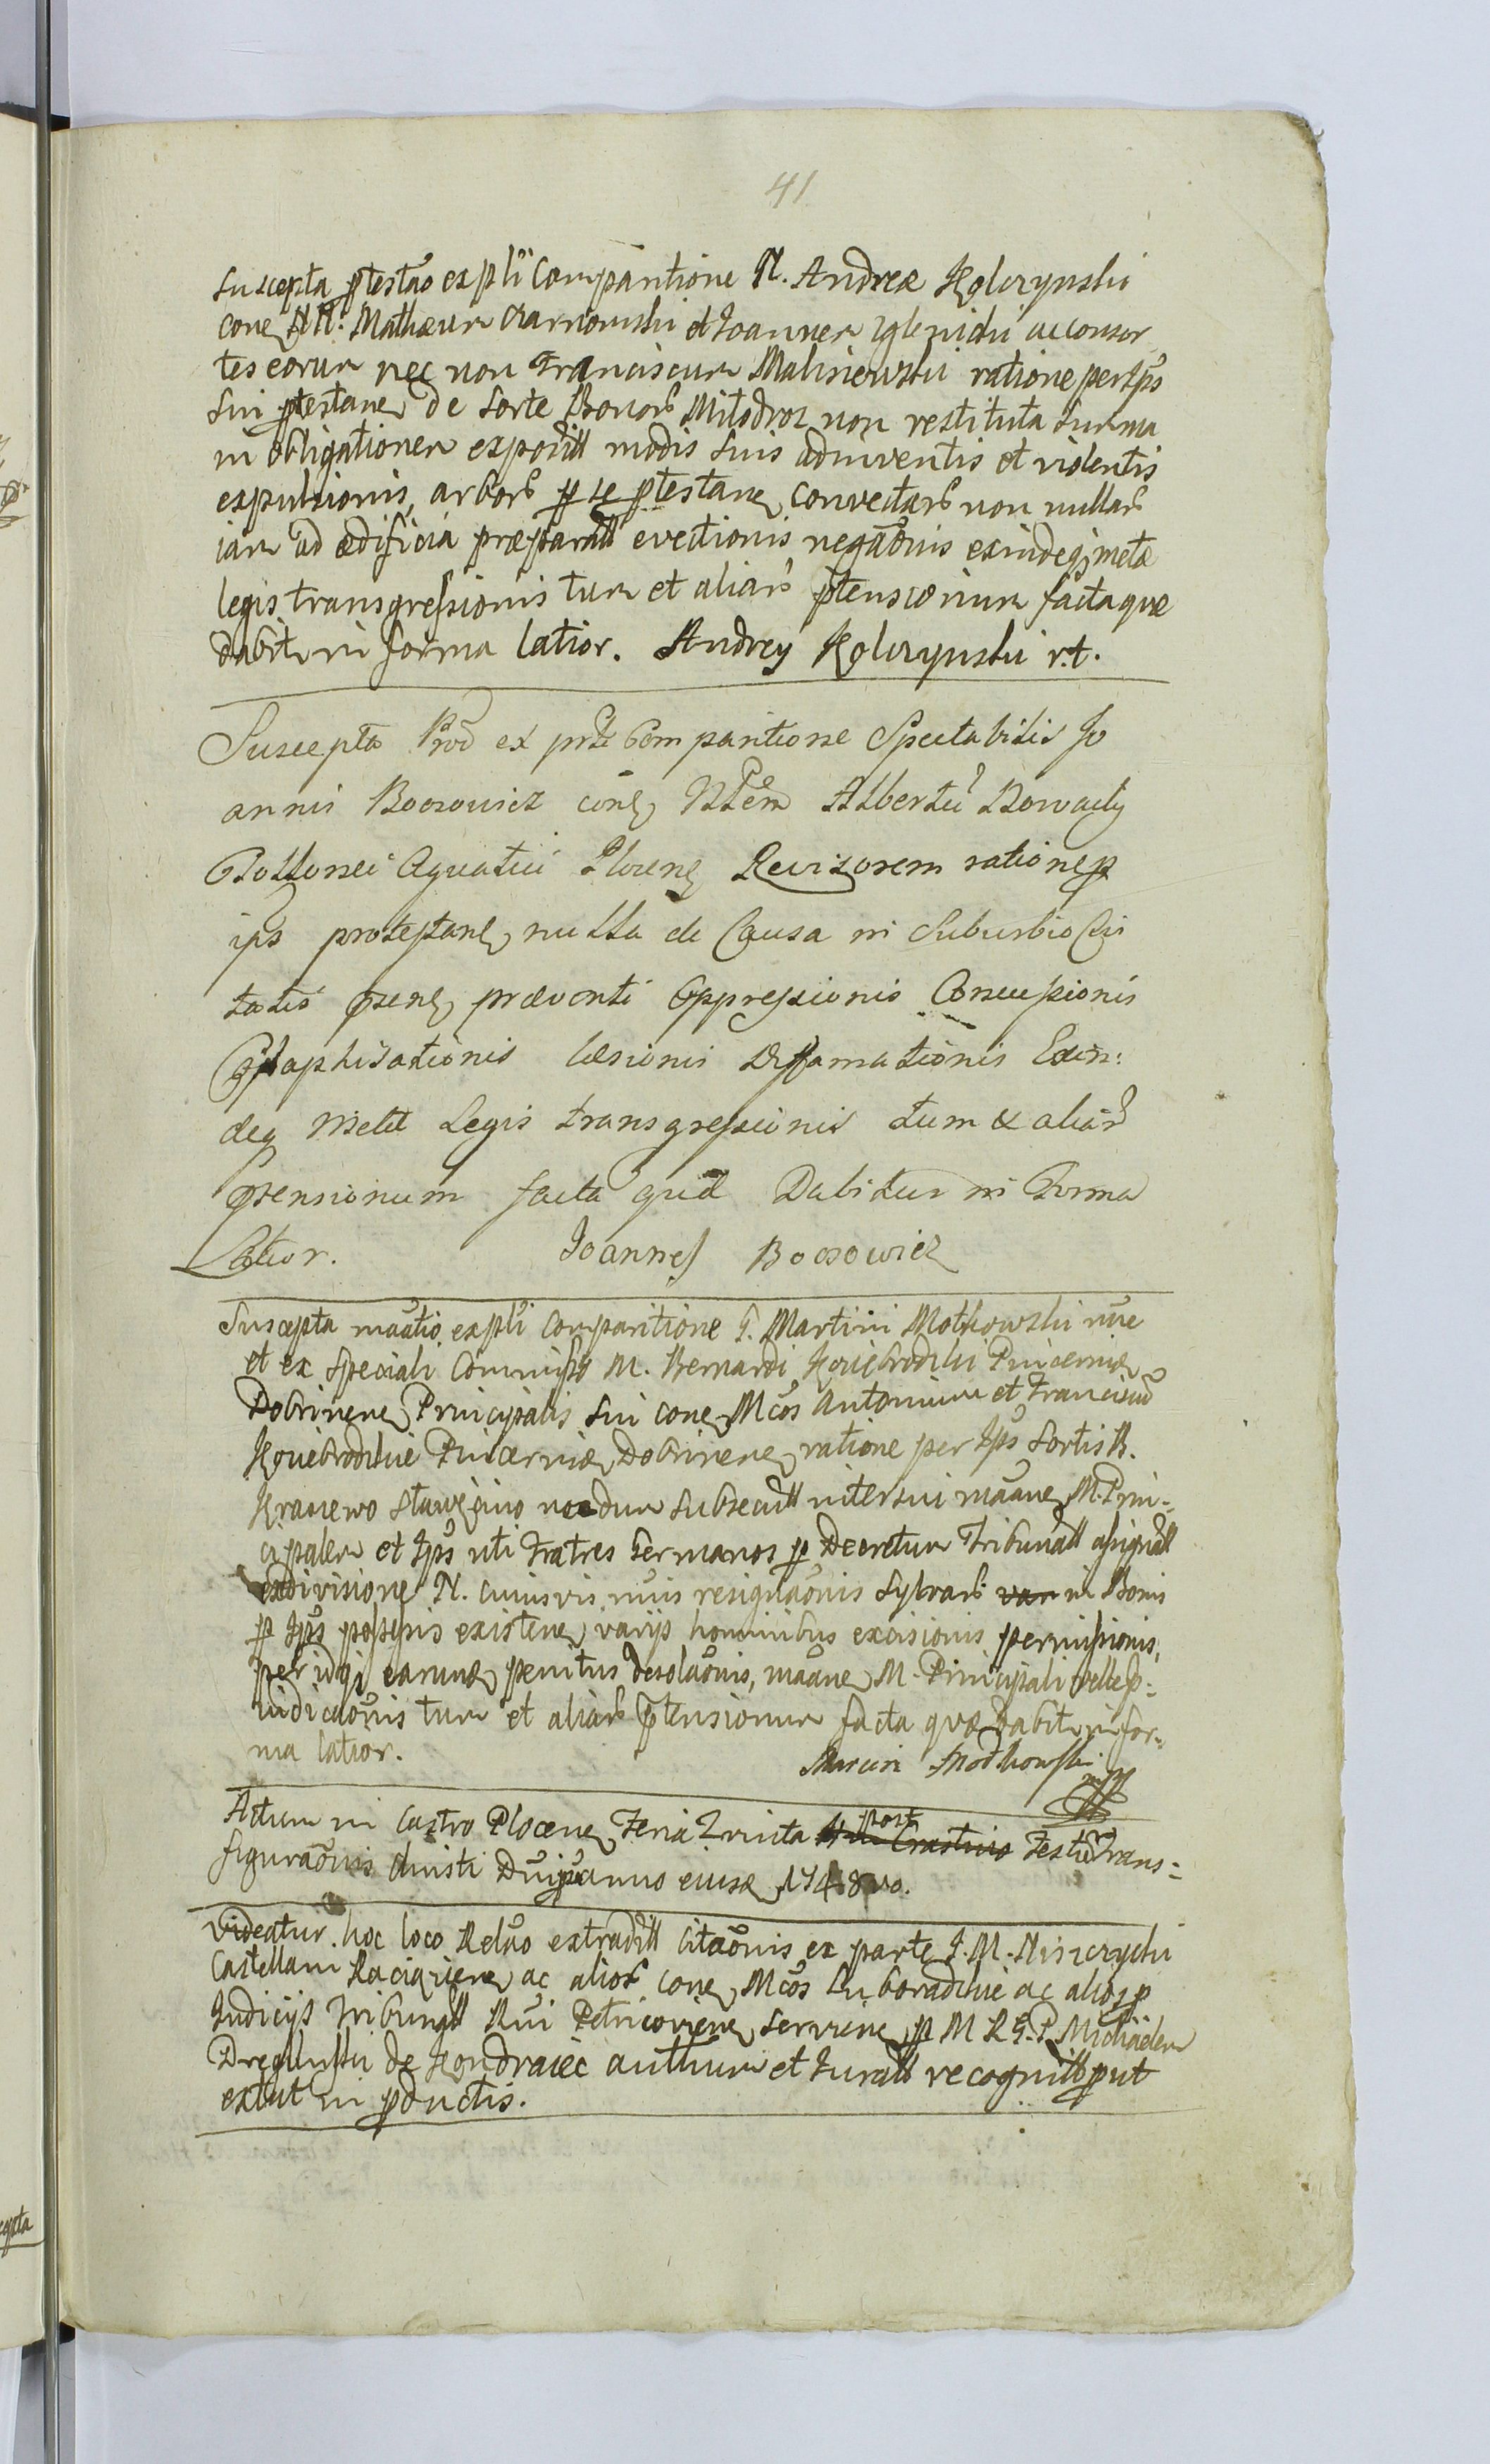 41
Suscepta ptestão ex plī Comparitione N. Andreæ Kolczynski
conę NN. Mathæum Czarnomski et Joannem Zglenicki ac Consor
tes eorum nec non Franciscum Malinowski ratione per Ips
sui ptestanę de Sorte Bonorb Mitodroz non restituta Summa
in obligationem exposītt modis suis adinventis et violentis
expulsionis, arborb p se ptestanę convectarb non nullarb
iam ad ædificia præparatt evectionis negāonis exindeqz metæ
legis transgressionis tum et aliarb ptensionum facta quæ
dabitr in forma latior. Andrzy Kolczynski r.t.
Suscepta Prod ex prte Comparitione Spectabilis Jo
annis Boosowicz conę Albertū Nowacky
Aquatici Plocenę Revizorem ratione p
ips protestanę nulla de Causa in Suburbio Civi
tatis præventi Oppressionis Concussionis
læsionis Diffamationis Exin:
deq Metæ Legis transgressionis tum & aliar
ptensionum facta quæ Dabitur in Forma
Latior. Joannes Boosowicz
Suscepta maātio ex plī Comparitione G. Martini Motkowski nūe
et ex speciali Commisso M. Bernardi Pincernię
Dobrinenę Principalis sui conę Mcōs Antonium et Franciscū
Pincernię Dobrinenę ratione per Ips Sortis B.
Kraiewo nondum subsecutt inter sui māanę M. Prin:
cipalem et Ips uti Fratres Germanos p Decretum Tribunatt assignatt
exdivisione N. cuiusvis nūis resignāonis Sylvarb in Bonis
p Ips possessis existenę varijs hominibus excisionis permissionis,
per idqz earumę penitus desolāonis, māanę M. Principali
iudicāonis tum et aliarb ptensionum facta quæ dabitr in for:
ma latior. Marcin Motkowski
mp
Actum in Castro Plocenę Feria Quinta post Crastino Festū Trans:
figurāonis Christi Dni anno eiusę 1748vo.
Videatur hoc loco Relāo extraditt Citāonis ex parte J. M. Niszczycki
Castellani Raciązienę ac aliorb conę Mcōs Luboradzkie ac alios p
Judicijs Tribunatt Rni Petricovienę Servienę p M R G. P. Michaelem
Dręglinski de Kondraiec authum et Juratt recognitt put
extat in pductis.